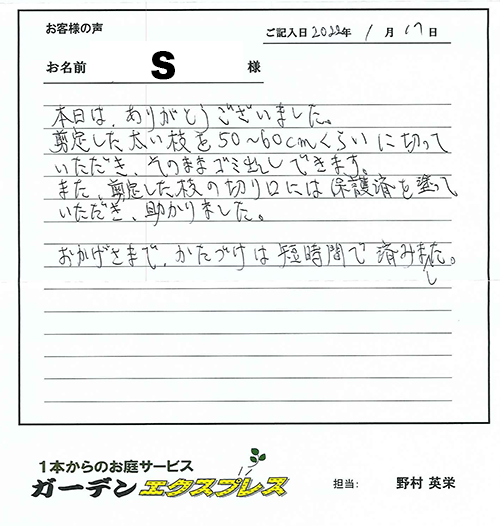 お客様の声
ご記入日2022年 1月17日
お名前 S 様
本日は、ありがとうございました。
剪定した太い枝を50～60cmくらいに切って
いただき、そのままゴミ出しできます。
また、剪定した枝の切り口には保護済を塗って
いただき、助かりました。
おかげさまで、かたづけは短時間で済みました。
1本からのお庭サービス
ガーデンエクスプレス
担当: 野村 英栄